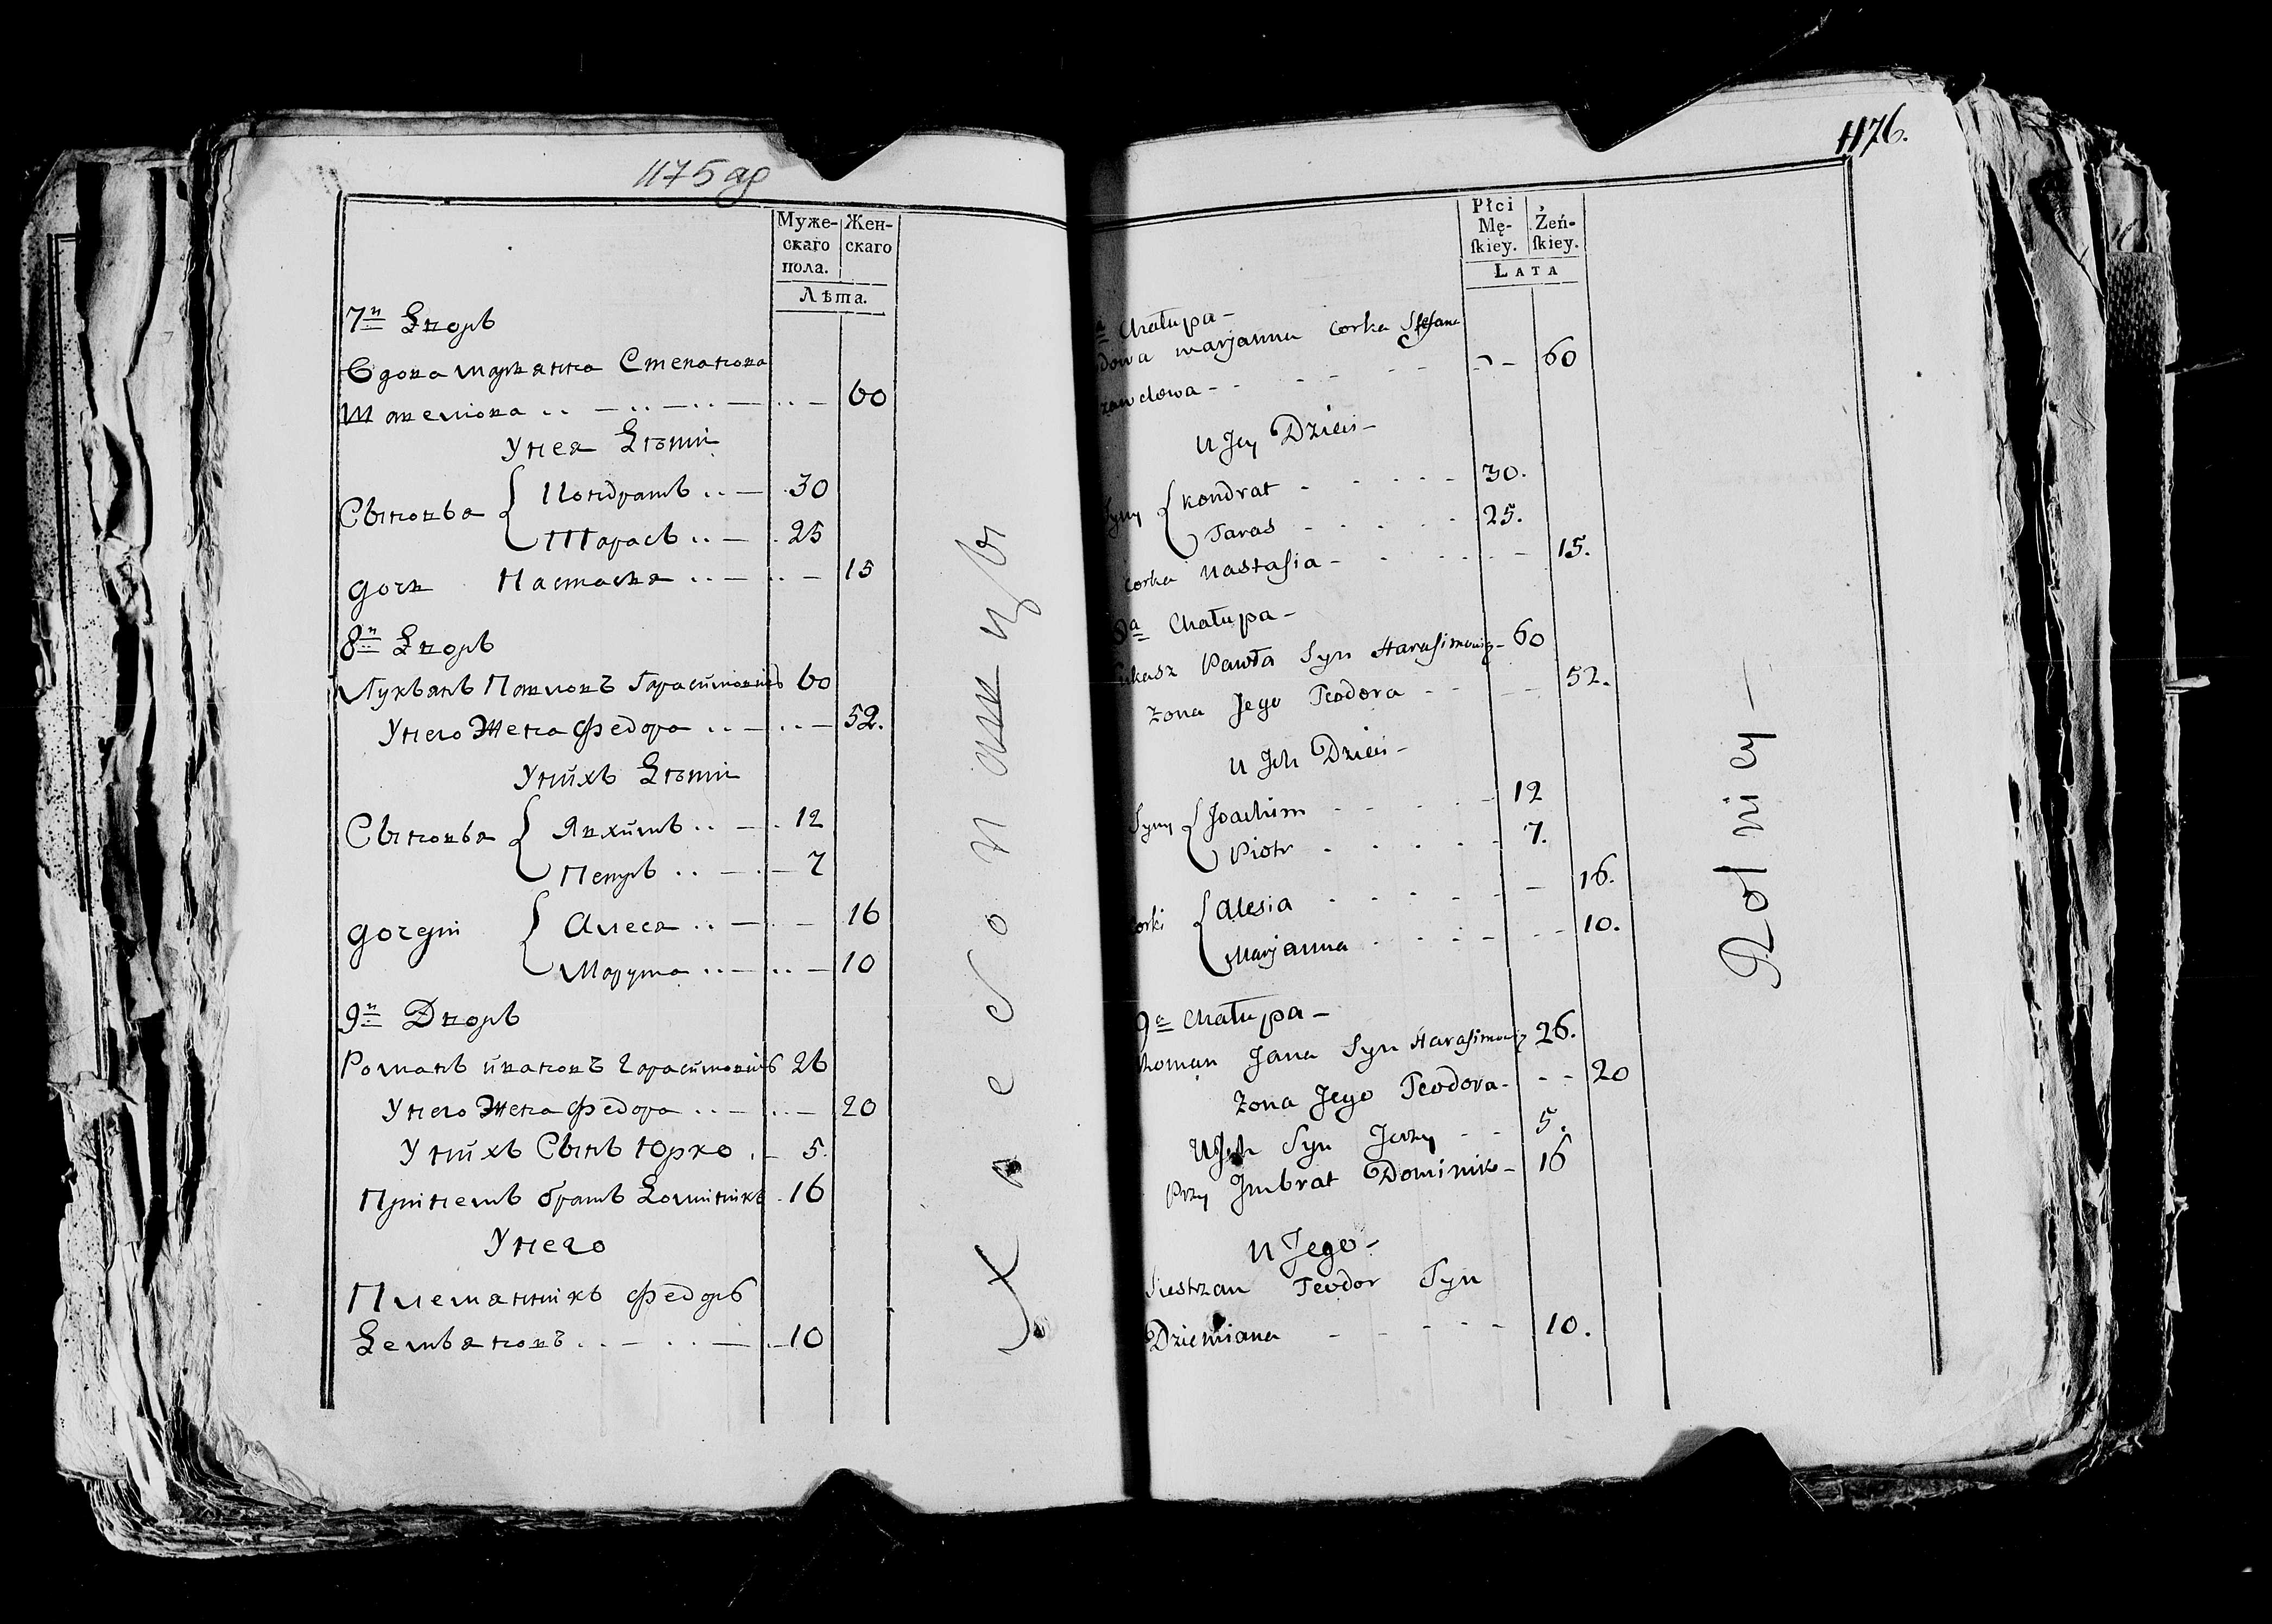 1175 ад
Муже-
скаго
пола.
Жен-
скаго
Лѣта.
7й Дворъ
Вдова Марьянна Степанова
60
Унея Дѣти
Сыновья
Кондратъ .. — 30
Тарасъ .. — 25
дочь Настасья .. — .. — 15
8й Дворъ
Лукьянъ Павловъ Герасимовичъ 60
Унего Жена Федора .. — .. — 52.
Унихъ Дѣти
Сыновья
Якимъ .. — 12
Петръ .. — 7
дочери
Алеся .. — — 16
Марута .. — .. — 10
9й Дворъ
Романъ Ивановъ Герасимовичъ 26
Унего Жена Федора .. — .. — 20
Унихъ Сынъ Юрко . — 5.
Принемъ братъ Доминикъ . 16
Унего
Племянникъ Федоръ
Демьяновъ . . — . . — . — 10
Хлебопашцы
1176.
Płci
Mę-
ſkiey.
Żeń-
ſkiey.
LATA
Chałupa -
dowa Marjanna Corka Stefana
60
U Jey Dzieci -
Syny
Kondrat - - - - - 30.
Taras - - - - 25.
Corka Nastasia - - - - 15.
8a Chałupa -
Łukasz Pawła Syn Harasimowicz - 60
Żona Jego Teodora - - - - 52.
U Jch Dzieci -
Syny
Joachim - - - - 12
Piotr - - - - - 7.
Corki
Alesia - - - - - - 16.
Marjanna - - - - - - 10.
9a Chałupa -
Roman Jana Syn Harasimowicz 26.
Żona Jego Teodora - - - 20
U Jch Syn Jerzy - - 5.
Przy Jm brat Dominik - 16
U Jego -
Siestrzan Teodor Syn
Dziemiana - - - - - 10.
Rolnicy -